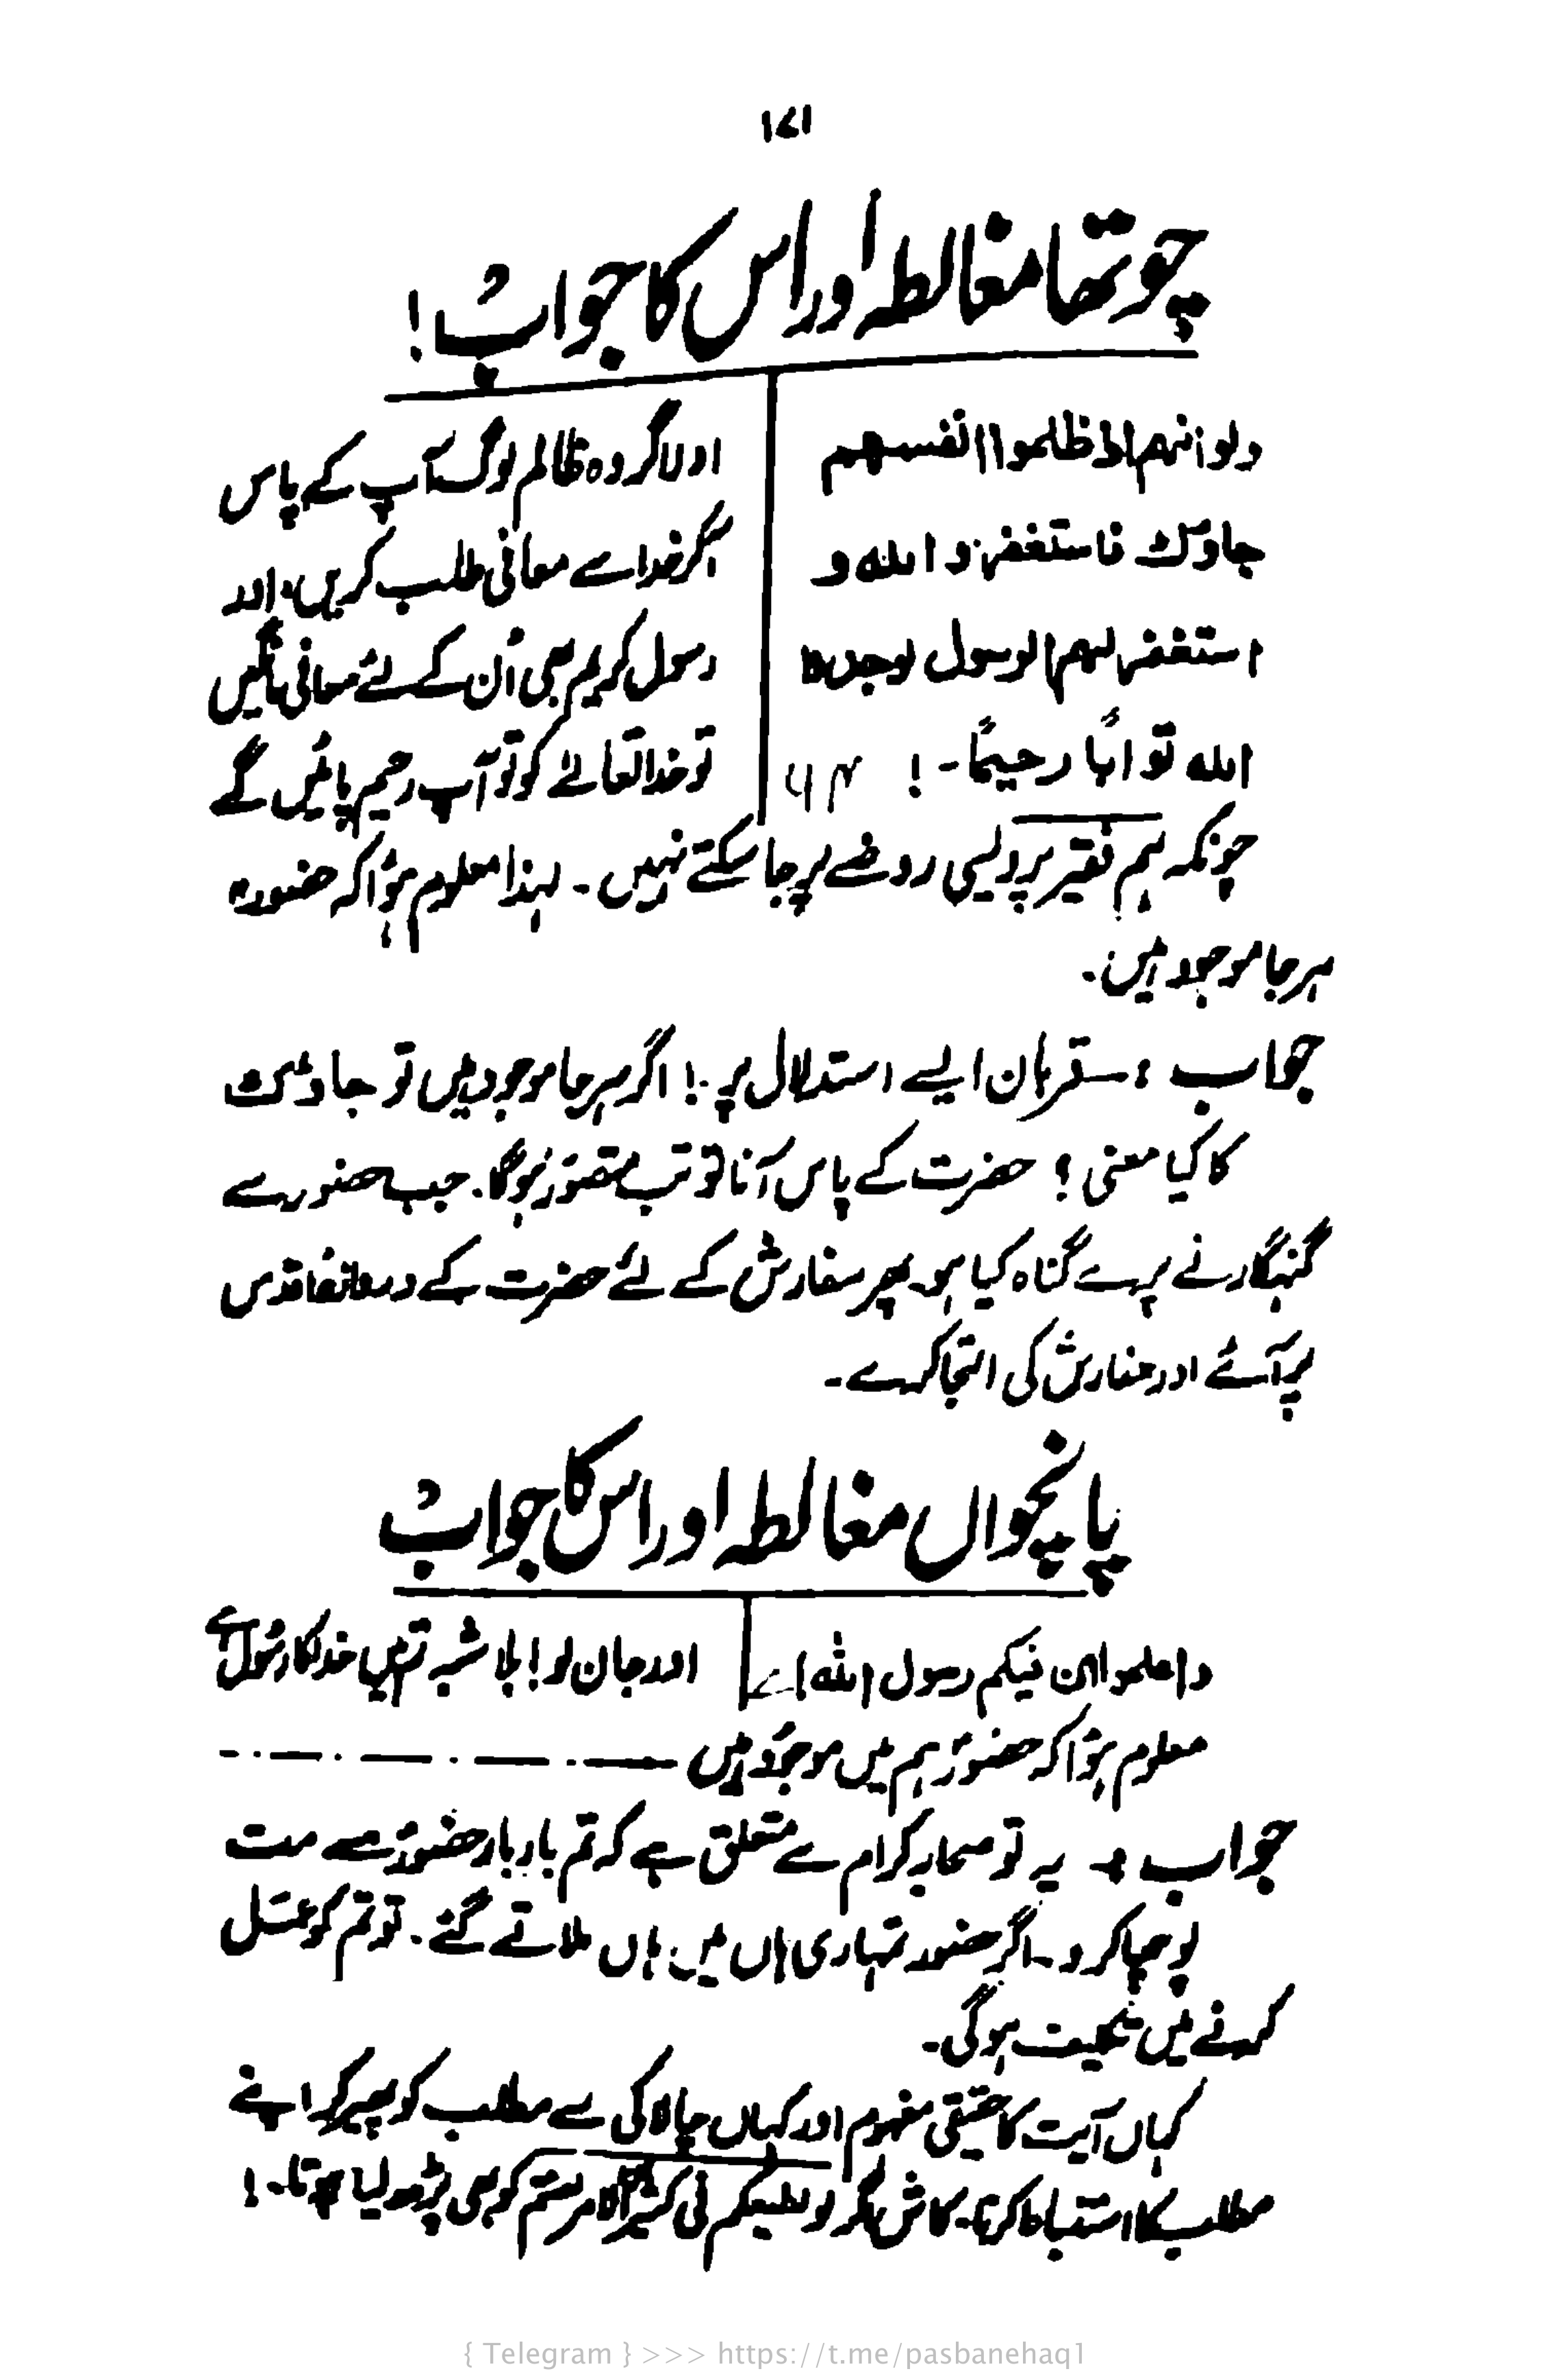 ۱۷۱
چوتھا مغالطہ اور اس کا جواب!
ولو انہم اذ ظلموا انفسہم
جاوٴک فاستغفروا اللہ و
استغفر لہم الرسول لوجدوا
اللہ توابًا رحیمًا۔ ! ۶۴
اور اگر وہ ظالم لوگ آپ کے پاس
آکر خدا سے معافی طلب کریں، اور
رسول کریم بھی اُن کے لئے معافی مانگیں
تو خدا تعالےٰ کو توآب رحیم پائیں گے
چونکہ ہم فقیر پردیسی روضے پر جا سکتے نہیں۔ لہذا معلوم ہؤا کہ حضورؐ
ہر جا موجود ہیں۔
جواب : قربان ایسے استدلال پر! اگر ہر جا موجود ہیں تو جاوٴک
کا کیا معنی؟ حضرت کے پاس آنا تو تب متصوّر ہوگا۔ جب حضور سے
گنہگار نے پرے گناہ کیا ہو۔ پھر سفارش کے لئے حضرت کے در اقدس
پر آئے اور سفارش کی التجا کرے۔
پانچواں مغالطہ اور اس کا جواب
واعلموا ان فیکم رسول اللہ
اور جان لو! بلا شبہ تمہیں خدا کا رسُول ہے
معلوم ہؤا کہ حضورؐ ہم میں موجُود ہیں
جواب :۔ یہ تو صحابہ کرام سے متعلق ہے کہ تم بار بار حضورؐ سے مت
پوچھا کرو۔ اگر حضور تمہاری ہاں میں ہاں ملاتے گئے۔ تو تم کو عمل
کرنے میں ہوگی۔
کہاں آیت کا حقیقی مفہوم اور کہاں چالاکی سے مطلب کو پھیر کر اپنے
مطلب کا استنباط کرنا۔ کاش اگر لو یطیعکم فی کثیر الامر لعنتم کو بھی پڑھ لیا ہوتا۔!
{ Telegram } >>> https://t.me/pasbanehaq1